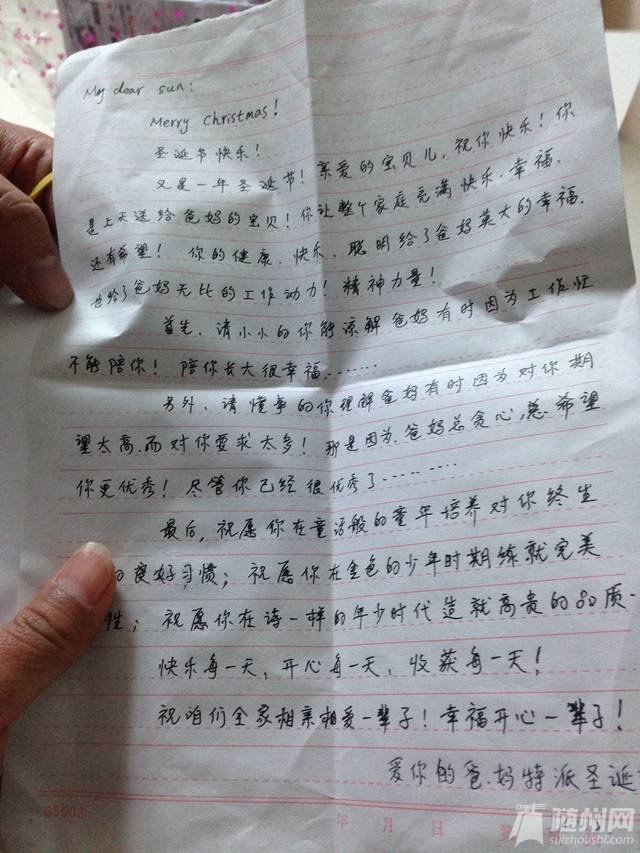 My dear sun:
Merry Christmas!
圣诞节快乐!
又是一年圣诞节!亲爱的宝贝儿,祝你快乐!你
是上天送给爸妈的宝贝!你让整个家庭充满快乐、幸福、
还有希望!你的健康、快乐、聪明给了爸妈莫大的幸福,
也给了爸妈无比的工作动力!精神力量!
首先,请小小的你能谅解爸妈有时因为工作忙
不能陪你!陪你长大很幸福……
另外,请懂事的你理解爸妈有时因为对你期
望太高,而对你要求太多!那是因为,爸妈总贪心,总希望
你更优秀!尽管你已经很优秀了………
最后,祝愿你在童话般的童年培养对你终生
良好习惯;祝愿你在金色的少年时期练就完美
性;祝愿你在诗一样的年少时代造就高贵的品质.
快乐每一天,开心每一天,收获每一天!
祝咱们全家相亲相爱一辈子!幸福开心一辈子!
爱你的爸.妈特派圣诞
65602
年 月 日 第
随州网
suizhoushi.com